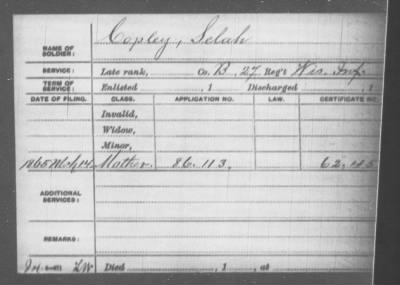 NAME OF SOLDIER: Copley, Selah
SERVICE: Late rank, Co. B, 27 Reg't Wis. Inf.
TERM OF SERVICE: Enlisted , 1 Discharged , 1
DATE OF FILING. CLASS. APPLICATION NO. LAW. CERTIFICATE NO.
Invalid,
Widow,
Minor,
1865 Mch 14 Mother. 86.113. 62.185
ADDITIONAL SERVICES:
REMARKS:
Died , 1 , at